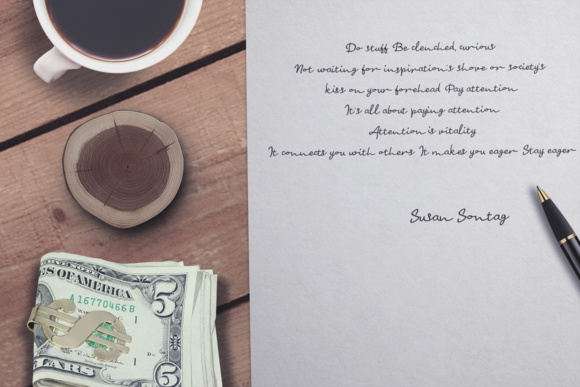 Do stuff Be clenched, curious
Not waiting for inspiration's shove or society's
kiss on your forehead Pay attention
It's all about paying attention
Attention is vitality
It connects you with others It makes you eager Stay eager
Susan Sontag
S OF AMERICA
A 16770466 B
5
5
LARS